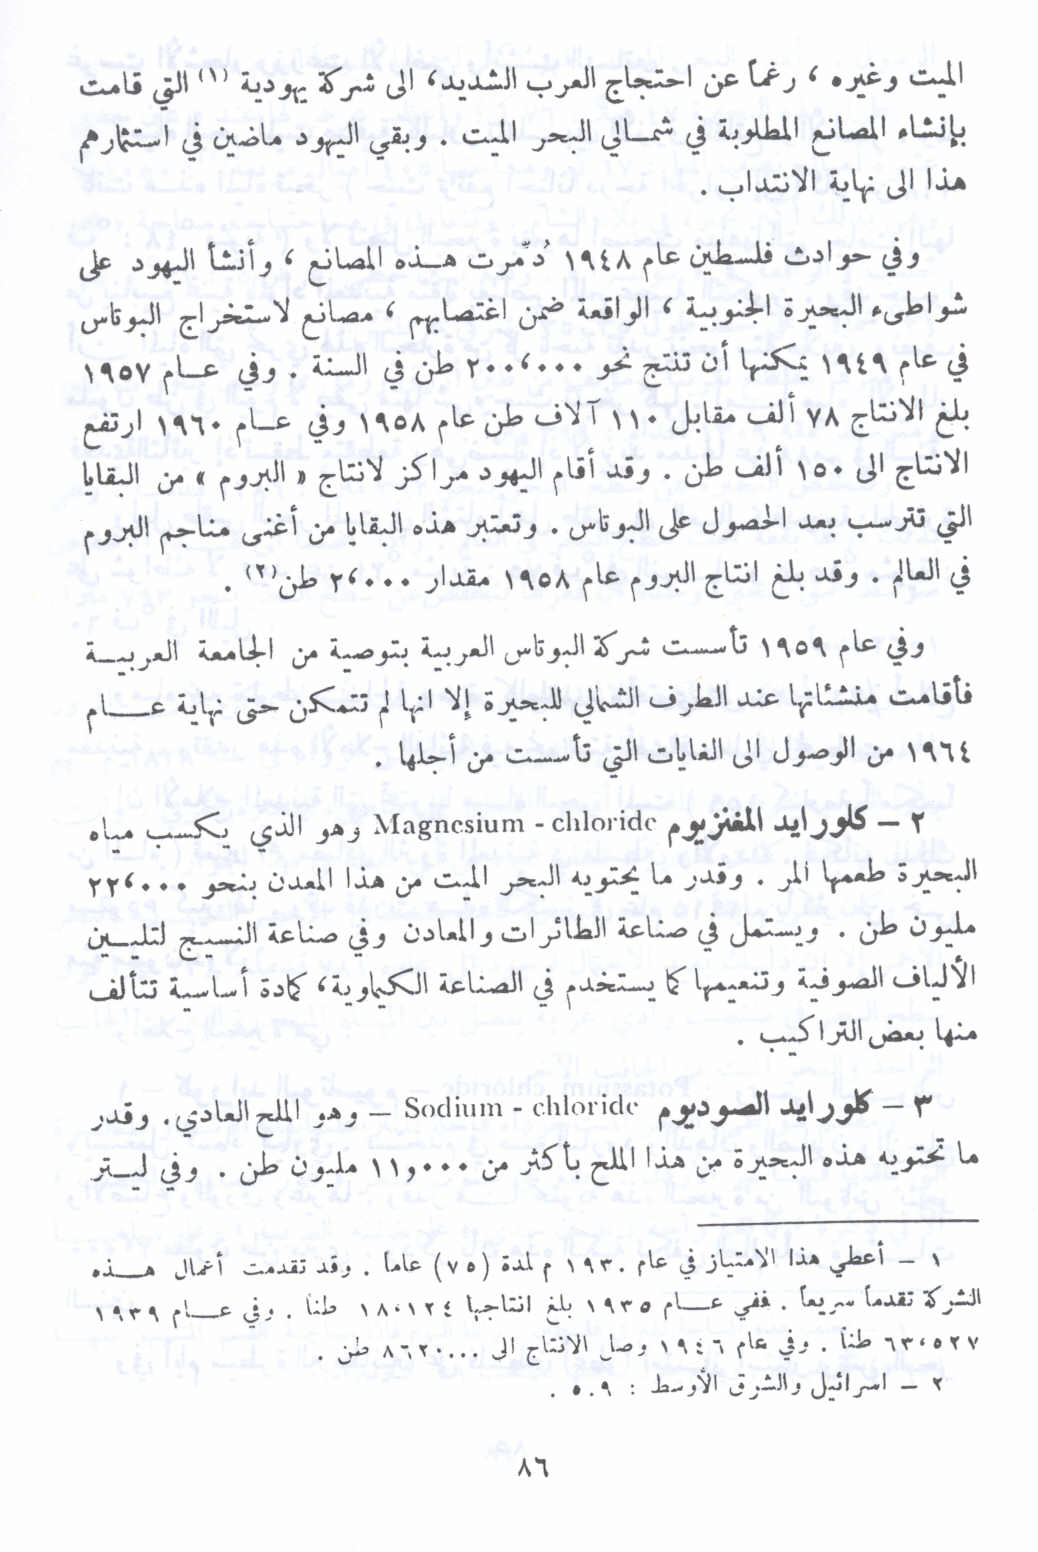 الميت وغيره ، رغماً عن احتجاج العرب الشديد، الى شركة يهودية (١) التي قامت
بإنشاء المصانع المطلوبة في شمـالي البحر الميت . وبقي اليهود ماضين في استثمارهم
هذا الى نهاية الانتداب .
وفي حوادث فلسطين عام ١٩٤٨ دُمّرت هـذه المصانع ، وأنشأ اليهود على
شواطىء البحيرة الجنوبية ، الواقعة ضمن اغتصابهم ، مصانع لاستخراج البوتاس
في عام ١٩٤٩ يمكنها أن تنتج نحو ٢٠٠،٠٠٠ طن في السنة . وفي عـام ١٩٥٧
بلغ الانتاج ٧٨ ألف مقابل ١١٠ آلاف طن عام ١٩٥٨ وفي عـام ١٩٦٠ ارتفع
الانتاج الى ١٥٠ ألف طن . وقد أقام اليهود مراكز لانتاج « البروم » من البقايا
التي تترسب بعد الحصول على البوتاس . وتعتبر هذه البقايا من أغنى مناجم البروم
في العالم . وقد بلغ انتاج البروم عام ١٩٥٨ مقدار ٢،٠٠٠ طن(٢) .
وفي عام ١٩٥٩ تأسست شركة البوتاس العربية بتوصية من الجامعة العربيـة
فأقامت منشئاتها عند الطرف الشمالي للبحيرة إلا انها لم تتمكن حتى نهاية عـام
١٩٦٤ من الوصول الى الغايات التي تأسست من أجلها .
٢ – كلورايد المغنزيوم Magnesium - chloride وهو الذي يكسب مياه
البحيرة طعمها المر . وقدر ما يحتويه البحر الميت من هذا المعدن بنحو ٢٢،٠٠٠
مليون طن . ويستمل في صناعة الطائرات والمعادن وفي صناعة النسيج لتليـين
الألياف الصوفية وتنعيمها كما يستخدم في الصناعة الكيماوية، كمادة أساسية تتألف
منها بعض التراكيب .
٣ – كلورايد الصوديوم Sodium - chloride – وهو الملح العادي. وقدر
ما تحتويه هذه البحيرة من هذا الملح بأكثر من ١١,٠٠٠ مليون طن . وفي ليـتر
١ – أعطي هذا الامتياز في عام ١٩٣٠ م لمدة (٧٥) عاماً . وقد تقدمت أعمال هـذه
الشركة تقدماً سريعاً . ففي عـام ١٩٣٥ بلغ انتاجها ١٨،١٢٤ طناً . وفي عـام ١٩٣٩
٦٣،٥٢٧ طناً . وفي عام ١٩٤٦ وصل الانتاج الى ٨٦٢٠٠٠٠ طن .
٢ – اسرائيل والشرق الأوسط : ٥٠٩ .
٨٦